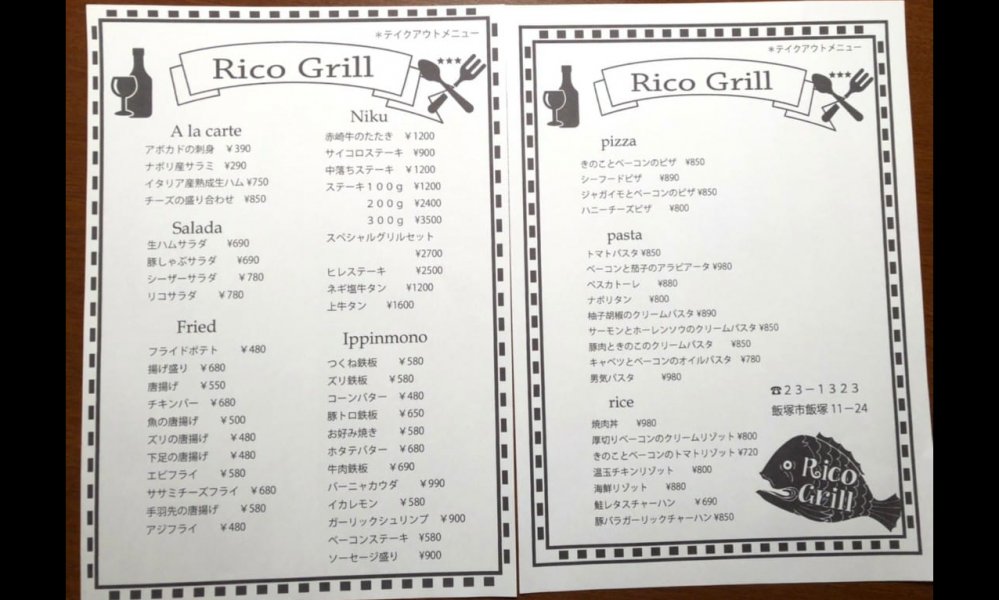 ＊テイクアウトメニュー
Rico Grill
A la carte
アボカドの刺身 ￥390
ナポリ産サラミ ¥290
イタリア産熟成生ハム ¥750
チーズの盛り合わせ ¥850
Salada
生ハムサラダ ¥690
豚しゃぶサラダ ¥690
シーザーサラダ ￥780
リコサラダ ￥780
Fried
フライドポテト ￥480
揚げ盛り ￥680
唐揚げ ￥550
チキンバー ￥680
魚の唐揚げ ￥500
ズリの唐揚げ ￥480
下足の唐揚げ ￥480
エビフライ ￥580
ササミチーズフライ ￥680
手羽先の唐揚げ ￥580
アジフライ ￥480
Niku
赤崎牛のたたき ￥1200
サイコロステーキ ¥900
中落ちステーキ ￥1200
ステーキ１００ｇ ¥1200
２００ｇ ¥2400
３００ｇ ¥3500
スペシャルグリルセット
¥2700
ヒレステーキ ¥2500
ネギ塩牛タン ¥1200
上牛タン ¥1600
Ippinmono
つくね鉄板 ￥580
ズリ鉄板 ￥580
コーンバター ￥480
豚トロ鉄板 ￥650
お好み焼き ￥580
ホタテバター ￥680
牛肉鉄板 ￥690
バーニャカウダ ￥990
イカレモン ￥580
ガーリックシュリンプ ￥900
ベーコンステーキ ¥580
ソーセージ盛り ¥900
＊テイクアウトメニュー
Rico Grill
pizza
きのことベーコンのピザ ¥850
シーフードピザ ¥890
ジャガイモとベーコンのピザ ¥850
ハニーチーズピザ ¥800
pasta
トマトパスタ ¥850
ベーコンと茄子のアラビアータ ¥980
ペスカトーレ ¥880
ナポリタン ¥800
柚子胡椒のクリームパスタ ¥890
サーモンとホーレンソウのクリームパスタ ¥850
豚肉ときのこのクリームパスタ ¥850
キャベツとベーコンのオイルパスタ ¥780
男気パスタ ¥980
rice
焼肉丼 ¥980
厚切りベーコンのクリームリゾット ¥800
きのことベーコンのトマトリゾット ¥720
温玉チキンリゾット ¥800
海鮮リゾット ¥880
鮭レタスチャーハン ￥690
豚バラガーリックチャーハン ¥850
☎２３－１３２３
飯塚市飯塚 11－24
Rico
Grill